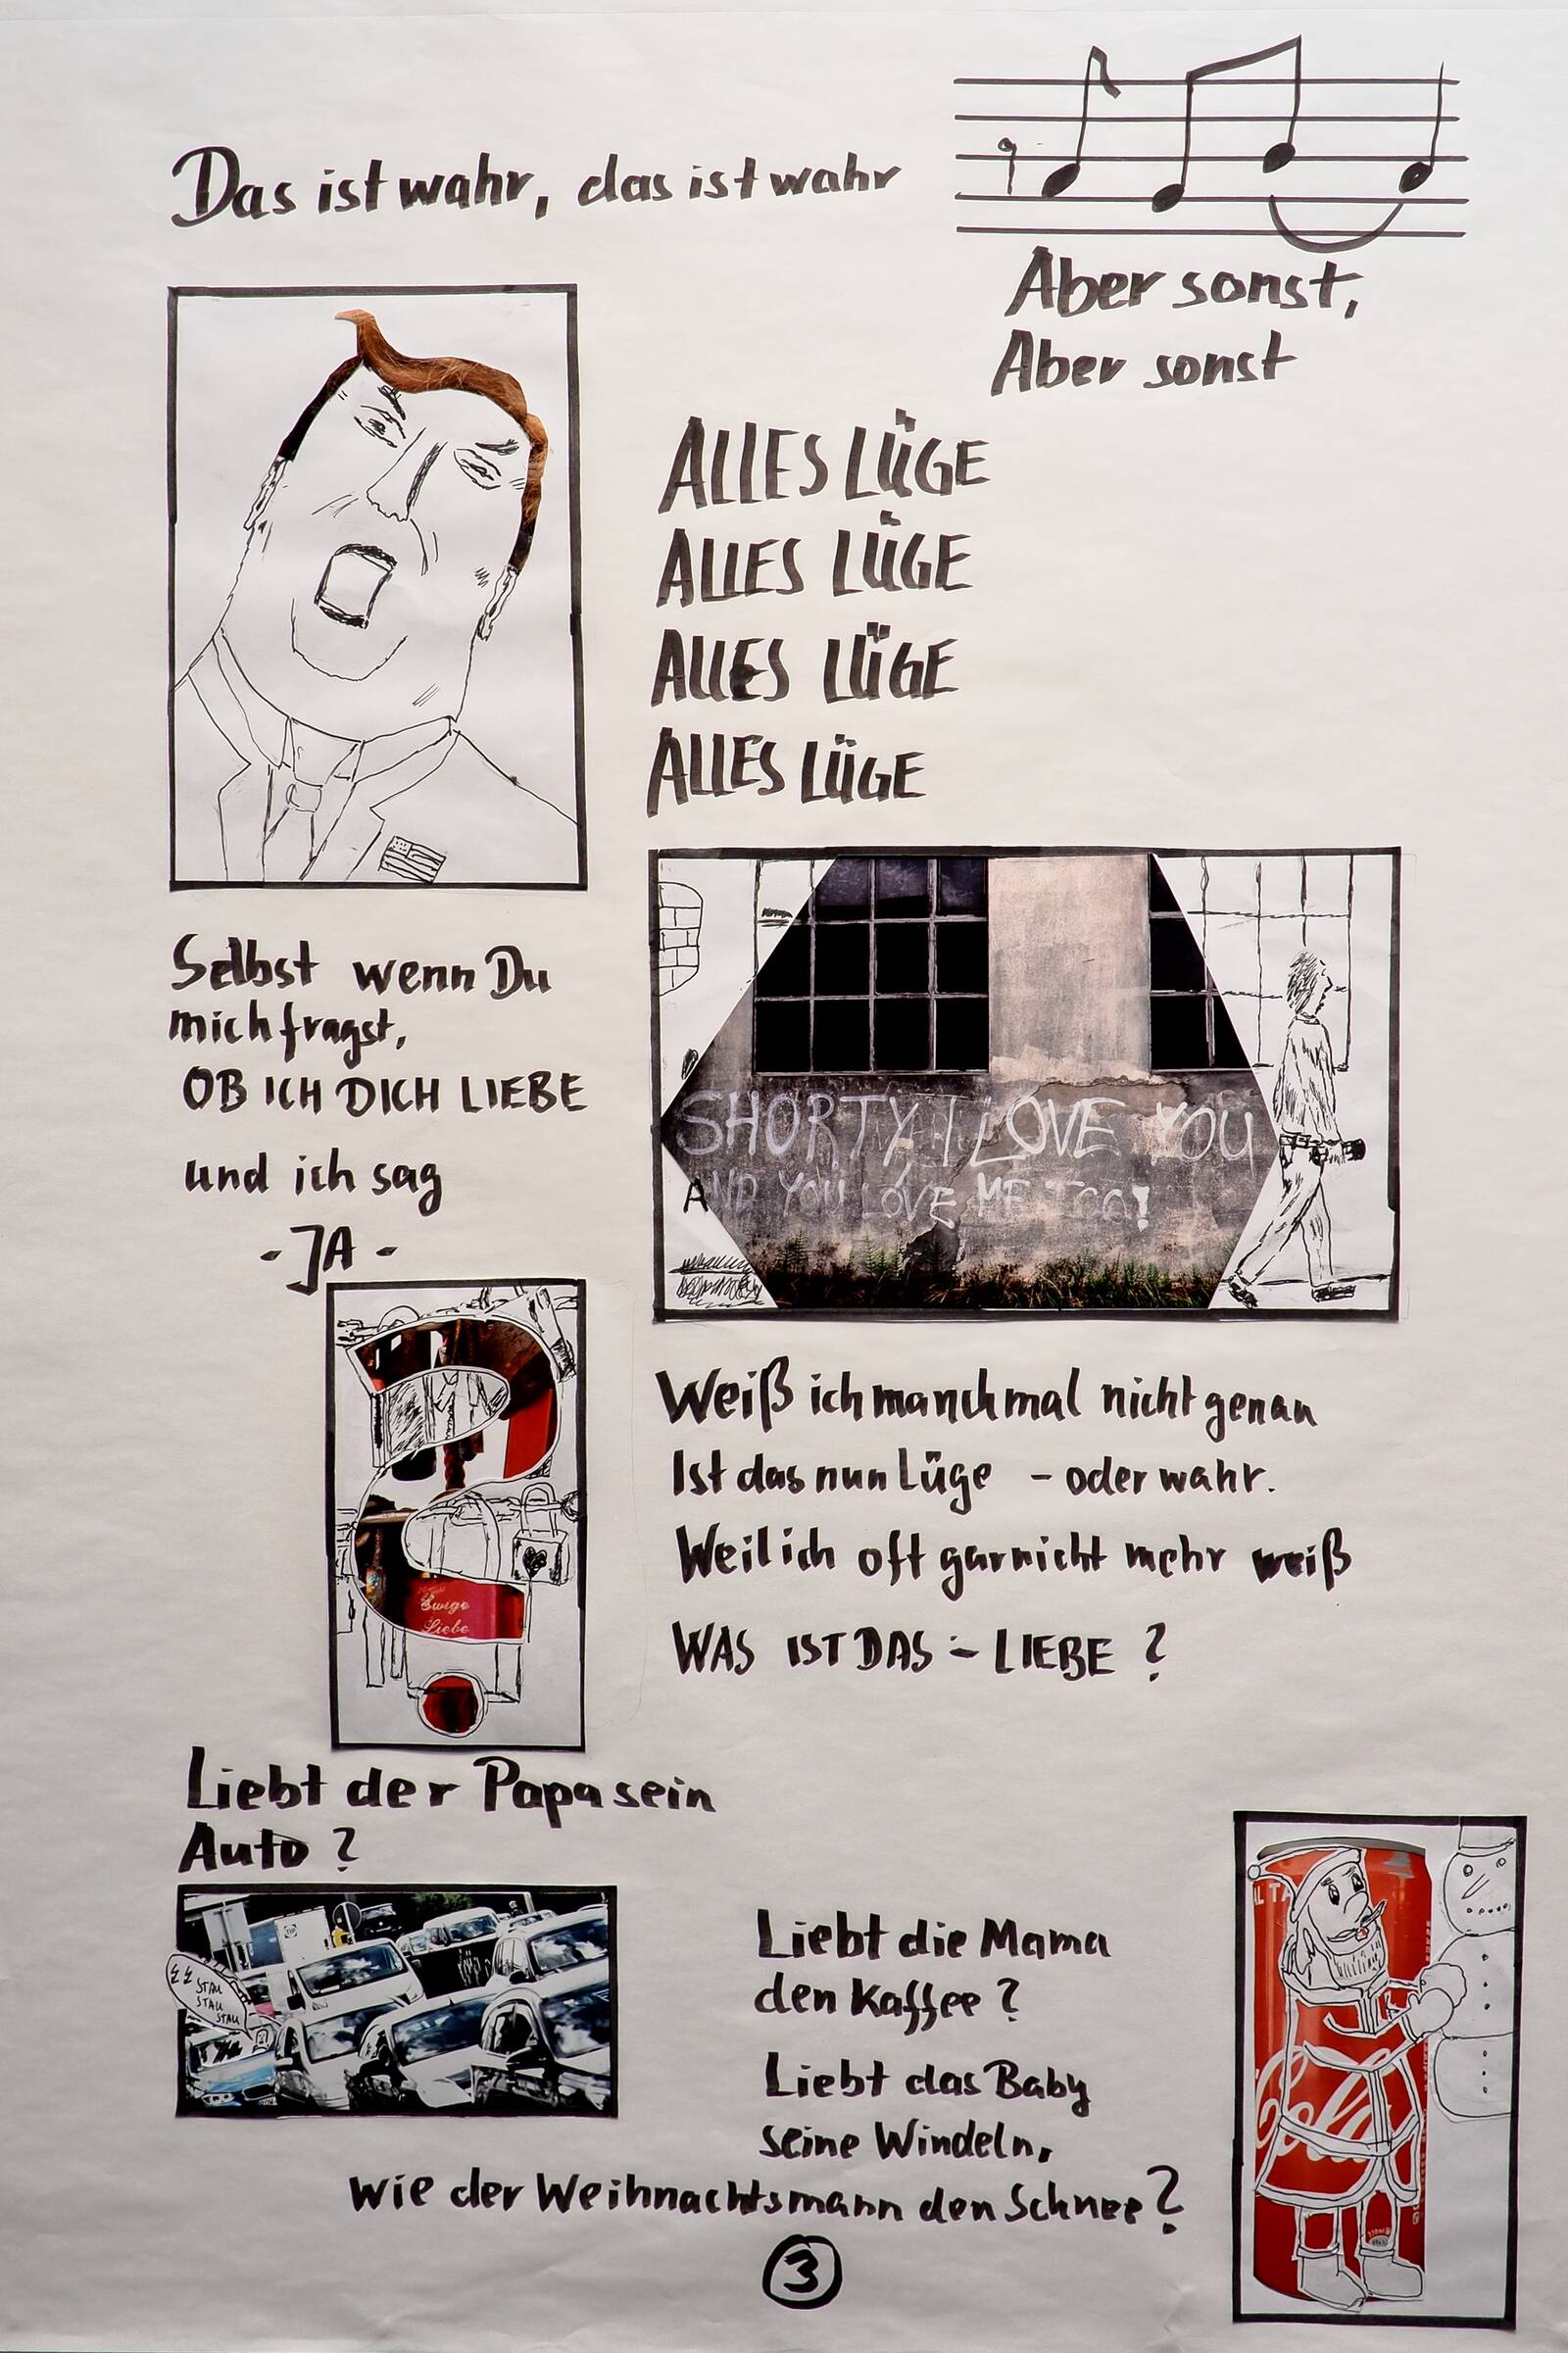 Das ist wahr, das ist wahr
Aber sonst,
Aber sonst
ALLES LÜGE
ALLES LÜGE
ALLES LÜGE
ALLES LÜGE
Selbst wenn Du
mich fragst,
OB ICH DICH LIEBE
und ich sag
- JA -
SHORTY I LOVE YOU
AND YOU LOVE ME TOO!
Weiß ich manchmal nicht genau
Ist das nun Lüge - oder wahr.
Weil ich oft garnicht mehr weiß
WAS IST DAS - LIEBE ?
Ewige
Liebe
Liebt der Papa sein
Auto ?
STAU
STAU
STAU
Liebt die Mama
den Kaffee ?
Liebt das Baby
seine Windeln,
wie der Weihnachtsmann den Schnee ?
Cola
3